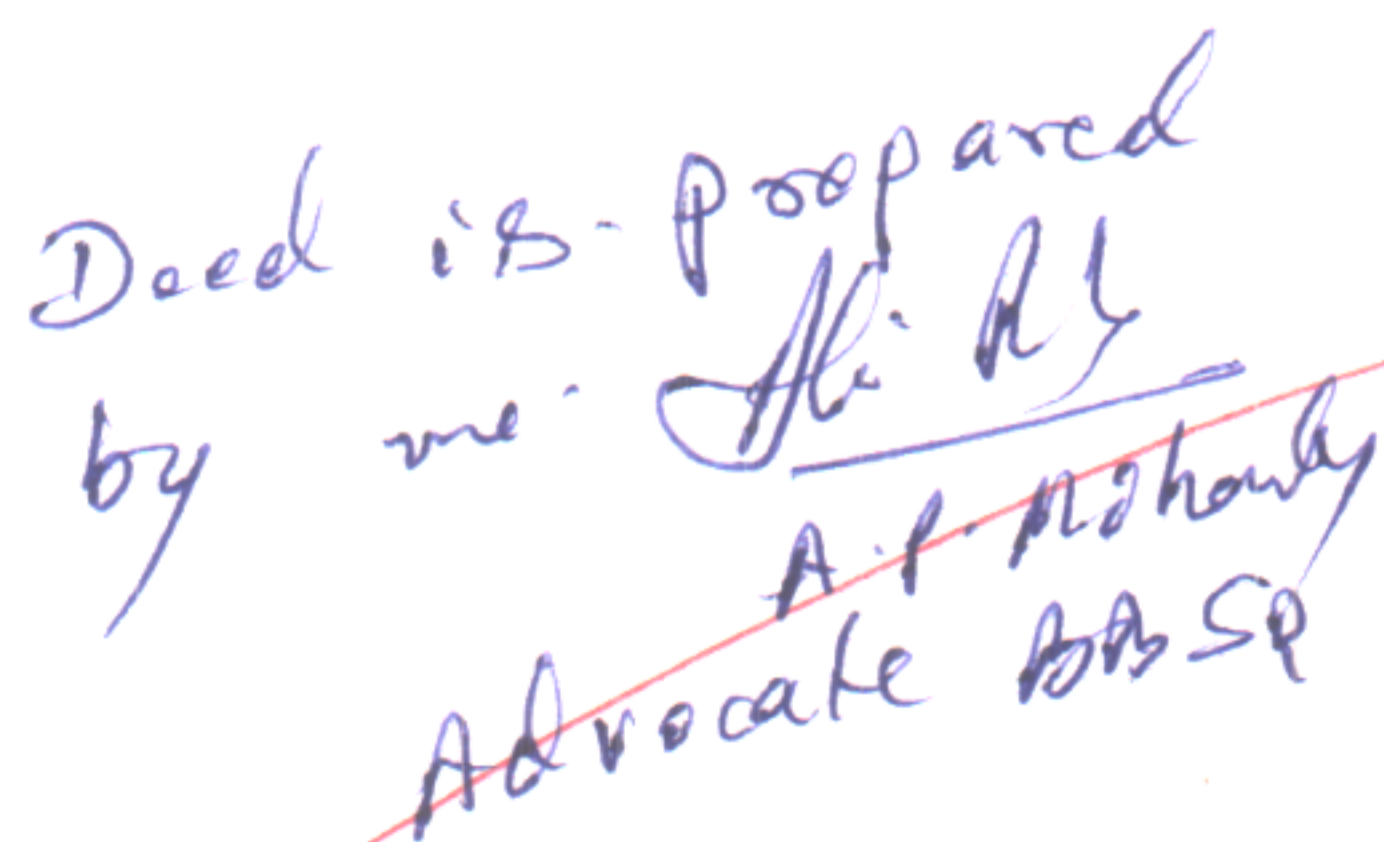 Deed is prepared
by me
A.P. Mohanty
Advocate BBSR